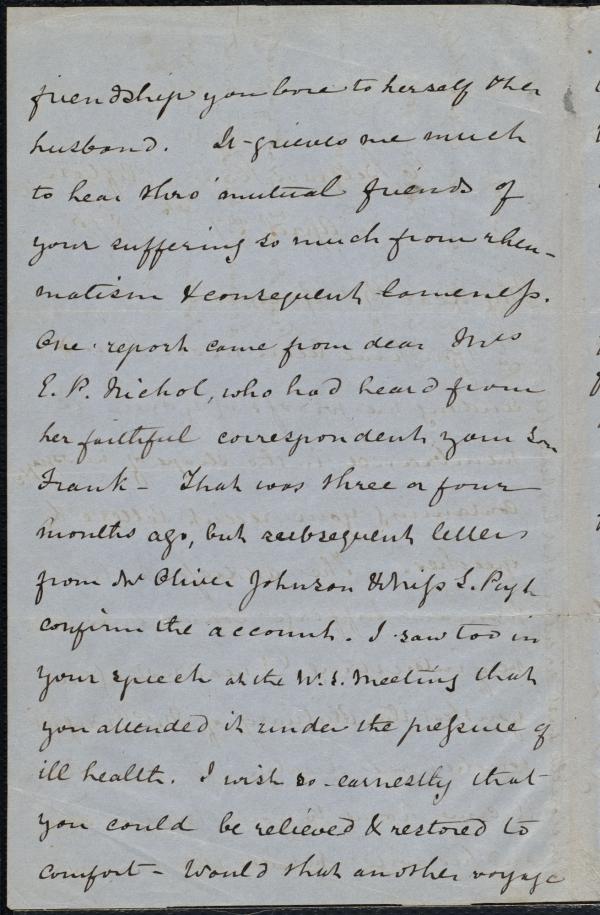 friendship you bore to herself & her
husband. It grieves me much
to hear thro' mutual friends of
your suffering so much from rheu-
matism & consequent lameness.
One report came from dear Mrs
E. P. Nichol, who had heard from
her faithful correspondent, your son
Frank - That was three or four
months ago, but subsequent letters
from Mr Oliver Johnson & Miss S. Pugh
confirm the account. I saw too in
your speech at the W. S. Meeting that
you attended it under the pressure of
ill health. I wish so earnestly that
you could be relieved & restored to
comfort - Would that another voyage